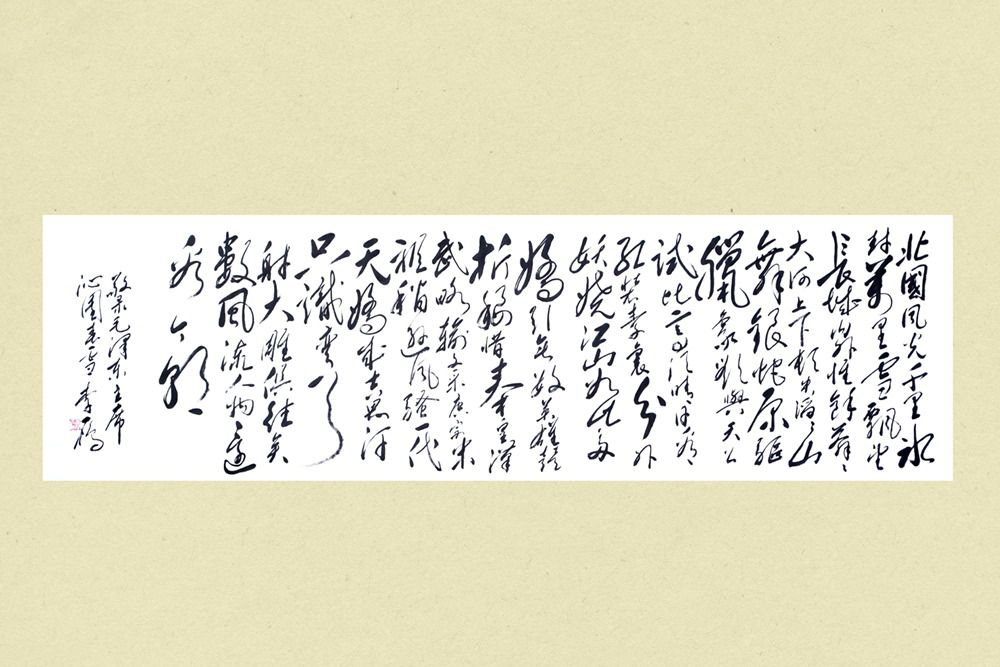 北國風光千里冰
封萬里雪飄望
長城內外惟餘莽々
大河上下頓失滔々山
舞銀蛇原驅
象欲與天公
試比高須晴日看
紅裝素裹分外
妖嬈江山如此多
嬌引無數英雄競
折腰惜秦皇漢
武略輸文采唐宗宋
祖稍遜風騷一代
天驕成吉思汗
只識彎弓
射大雕俱往矣
數風流人物還
看今朝
敬录毛澤東主席
沁園春雪 李